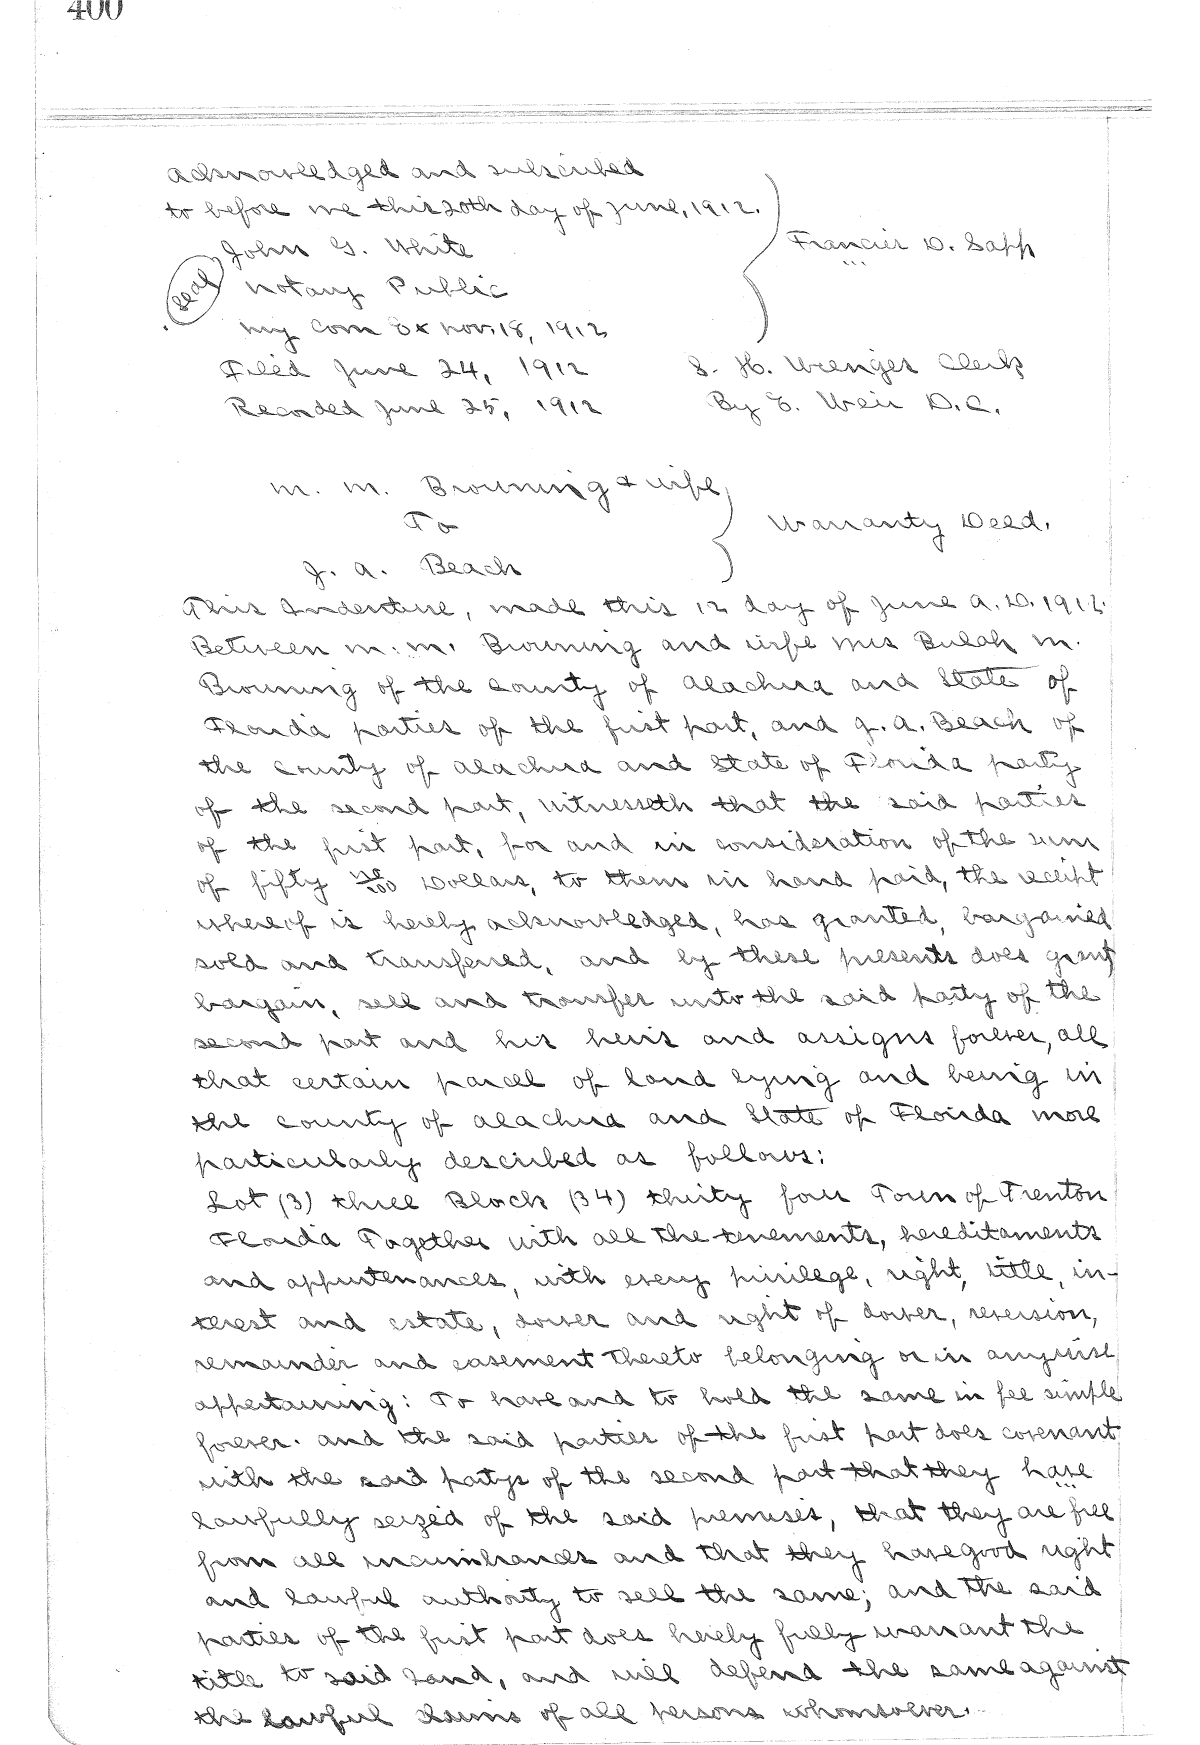 400
acknowledged and subscribed
to before me this 20th day of June, 1912.
John G. White
Francies D. Sapp
seal
Notary Public
my Com Ex Nov. 18, 1912
Filed June 24, 1912 S. H. Wienges Clerk
Recorded June 25, 1912 By E. Weir D.C.
M. M. Browning & wife
To
Warranty Deed.
J. A. Beach
This Indenture, made this 12 day of June A.D. 1912.
Between M. M. Browning and wife Mrs Bulah M.
Browning of the County of Alachua and State of
Florida parties of the first part, and J. A. Beach of
the County of Alachua and State of Florida party
of the second part, witnesseth that the said parties
of the first part, for and in consideration of the sum
of fifty no/100 Dollars, to them in hand paid, the receipt
whereof is hereby acknowledged, has granted, bargained
sold and transferred, and by these presents does grant
bargain, sell and transfer unto the said party of the
second part and his heirs and assigns forever, all
that certain parcel of land lying and being in
the County of Alachua and State of Florida more
particularly described as follows:
Lot (3) three Block (34) thirty four Town of Trenton
Florida Together with all the tenements, hereditaments
and appurtenances, with every privilege, right, title, in-
terest and estate, dower and right of dower, reversion,
remainder and easement thereto belonging or in anywise
appertaining: To have and to hold the same in fee simple
forever. and the said parties of the first part does covenant
with the said partys of the second part that they have
lawfully seized of the said premises, that they are free
from all incumbrances and that they have good right
and lawful authority to sell the same; and the said
parties of the first part does hereby fully warrant the
title to said land, and will defend the same against
the lawful claims of all persons whomsoever.